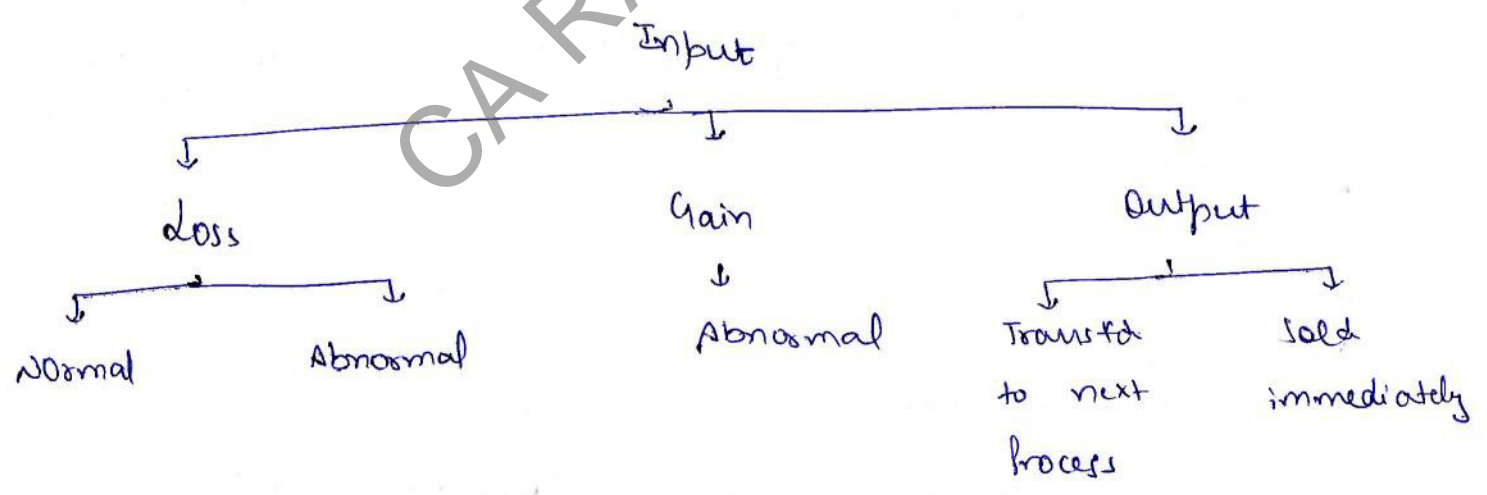 CA RA
Input
Loss
Gain
Output
Normal
Abnormal
Abnormal
Transfd
to next
Process
Sold
immediately